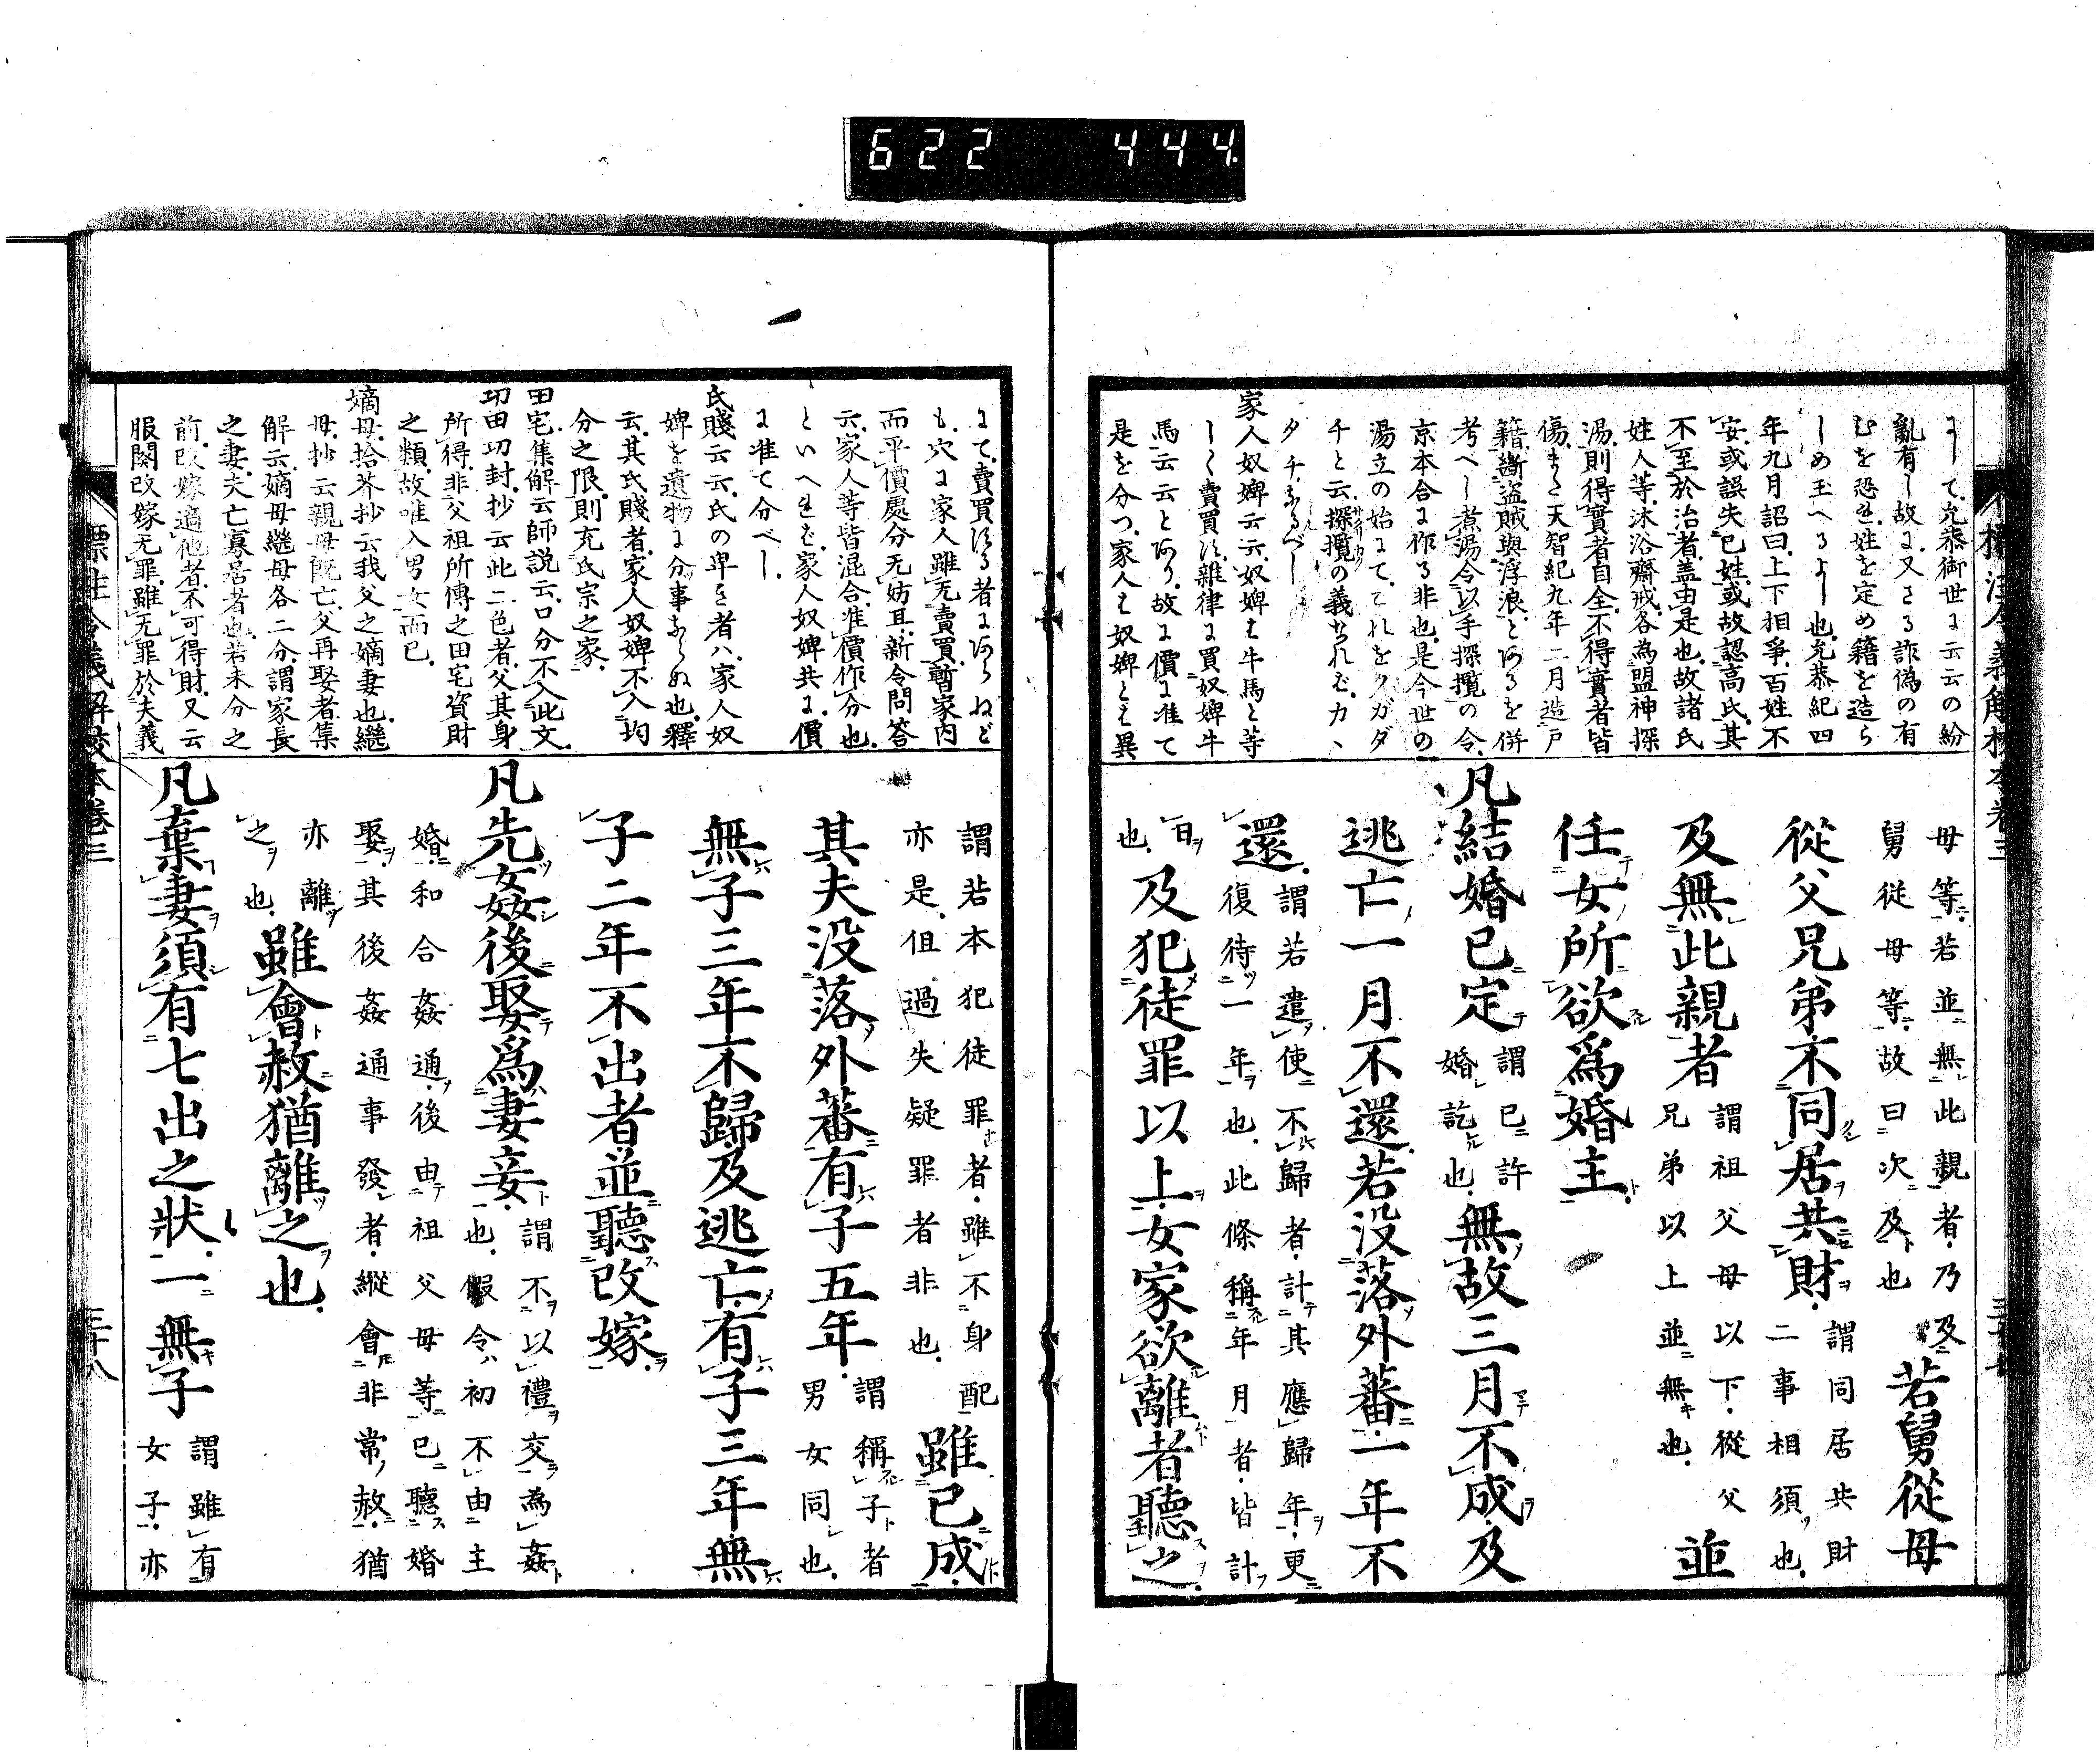 622 444.
標注令義解校本卷三
にして允恭御世に云云の紛
亂有し故に又さる詐偽の有
むを恐れ姓を定め籍を造ら
しめ玉へるよし也允恭紀四
年九月詔曰上下相爭百姓不
安或誤失己姓或故認高氏其
不至於治者蓋由是也故諸氏
姓人等沐浴齋戒各為盟神探
湯則得實者自全不得實者皆
傷また天智紀九年二月造戸
籍斷盜賊與浮浪とあるを併
考へし煮湯令以手探攬の令
京本合に作る非也是今世の
湯立の始にてこれをクガダ
チと云探攬の義なれどカヽ
タチなるべし
家人奴婢云云奴婢は牛馬と等
しく賣買す雜律に買奴婢牛
馬云云とあり故に價に准て
是を分つ家人は奴婢とは異
母等若並無此親者乃及
舅從母等故曰次及也
若舅從母
從父兄弟不同居共財
謂同居共財
二事相須也
及無此親者
謂祖父母以下從父
兄弟以上並無也
並
任女所欲爲婚主
凡結婚已定
謂已許
婚訖也
無故三月不成及
逃亡一月不還若没落外蕃一年不
還
謂若遣使不歸者計其應歸年更
復待一年也此條稱年月者皆計
日
也
及犯徒罪以上女家欲離者聽之
にて賣買する者にあらねど
も穴に家人雖无賣買暫家内
而平價處分无妨且新令問答
云家人等皆混合准價作分也
といへれば家人奴婢共に價
に准て分べし
氏賤云云氏の卑き者ハ家人奴
婢を遺物に分事ならぬ也釋
云其氏賤者家人奴婢不入均
分之限則充氏宗之家
田宅集解云師説云口分不入此文
功田功封抄云此二色者父其身
所得非父祖所傳之田宅資財
之類故唯入男女而已
嫡母拾芥抄云我父之嫡妻也繼
母抄云親母既亡父再娶者集
解云嫡母繼母各二分謂家長
之妻夫亡寡居者也若未分之
前改嫁適他者不可得財又云
服闋改嫁无罪雖无罪於夫義
謂若本犯徒罪者雖不身配
亦是但過失疑罪者非也
雖已成
其夫没落外蕃有子五年
謂稱子者
男女同也
無子三年不歸及逃亡有子三年無
子二年不出者並聽改嫁
凡先姦後娶爲妻妾
謂不以禮交為姦
也假令初不由主
婚和合姦通後由祖父母等已聽婚
娶其後姦通事發者縱會非常赦猶
亦離
之也
雖會赦猶離之也
凡棄妻須有七出之状一無子
謂雖有
女子亦
標注令義解校本卷三
三十八